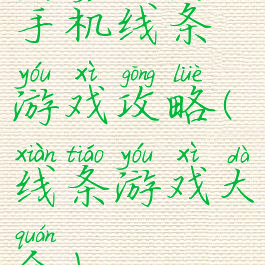 手机线条
yóu xì gōng lüè
游戏攻略(
xiàn tiáo yóu xì dà
线条游戏大
quán
全)